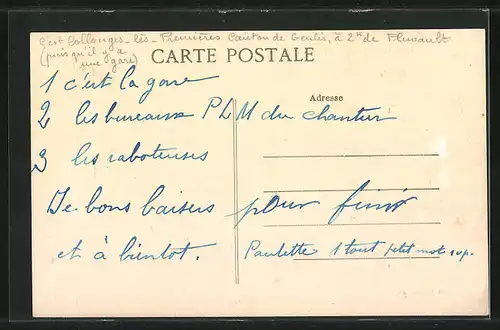 c'est Collonges-lès-Premières Canton de Genlis, à 2 k de Pluvault
(puisqu'il y a
une gare)
CARTE POSTALE
1 c'est la gare
Adresse
2 les bureaux PLM du chantier
3 les raboteuses
De bons baisers pour finir
et à bientot. Paulette 1 tout petit mot s.v.p.